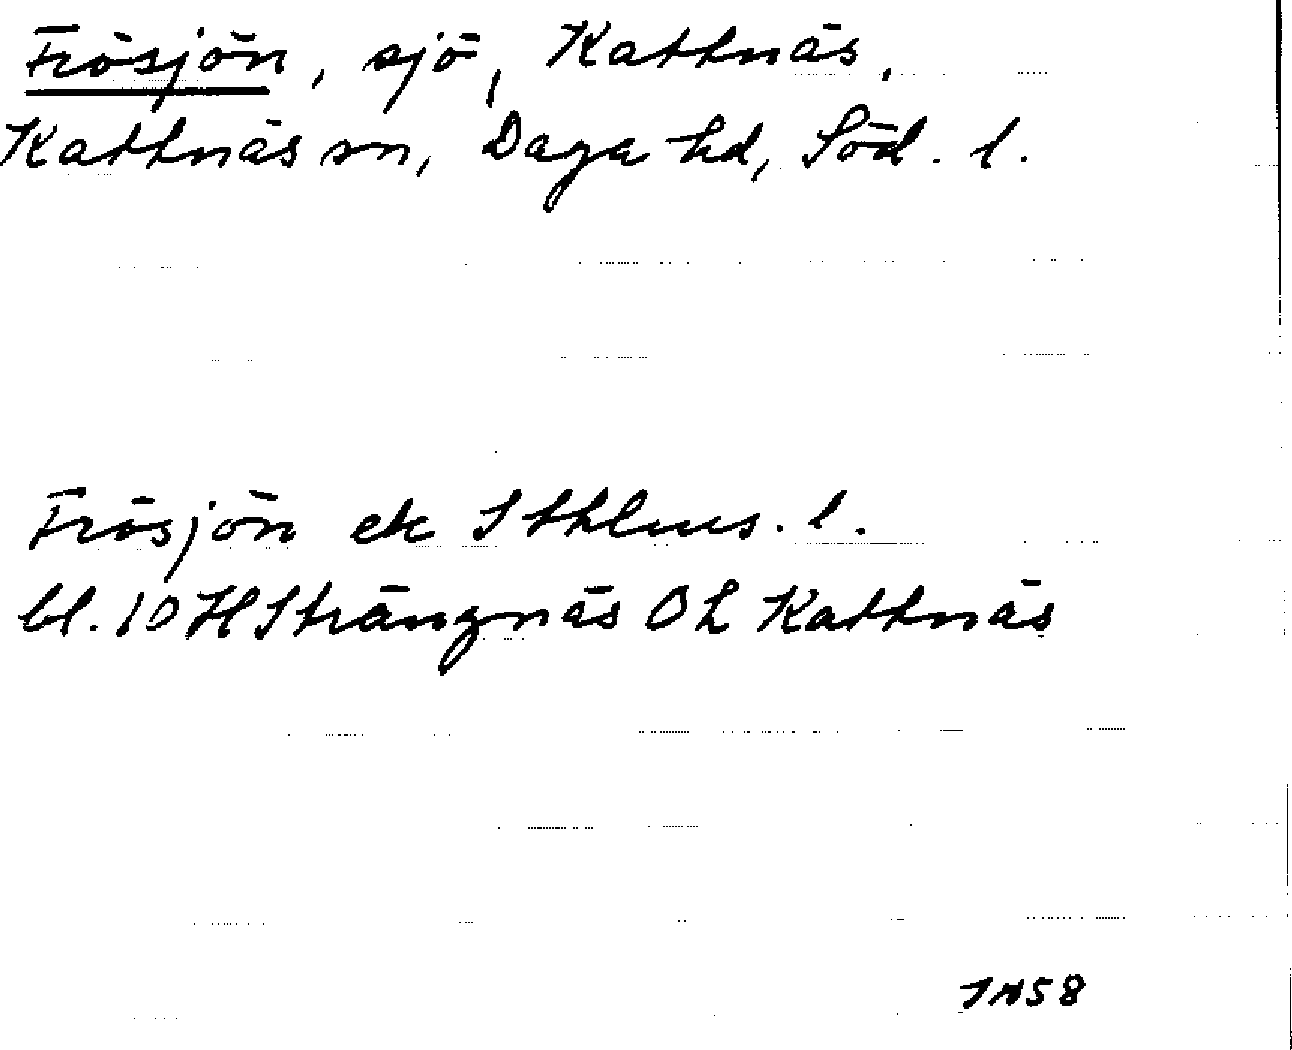 Frösjön, sjö, Kattnäs,
Kattnäs sn, Daga hd, Söd. l.
Frösjön ek Sthlms. l.
bl. 10 H Strängnäs O L Kattnäs